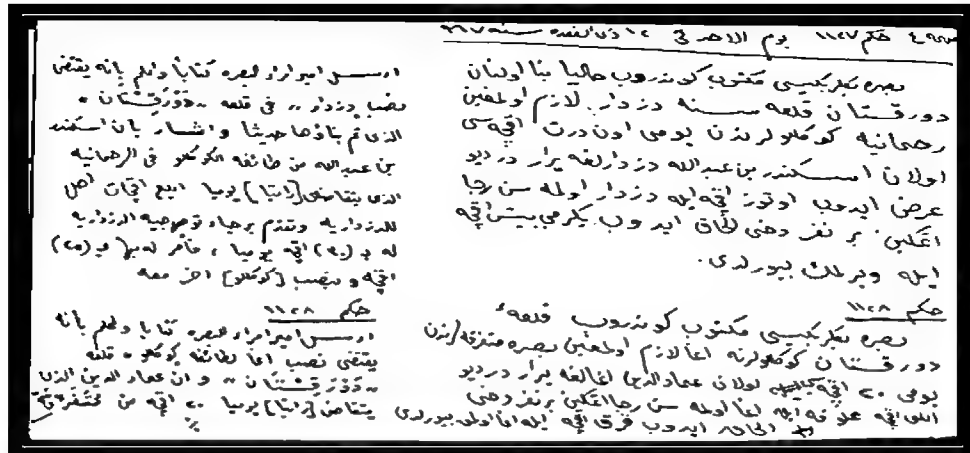 حكم ١١٢٧ يوم الاحد في ١٢ ذى القعده سنه ٩٦٧
بصره بكلربكيسى مكتوب كوندروب حاليا بنا اولنان
دورقستان قلعه سنه دزدار لازم اولمغين
رحمانيه كوكللولرندن يومى اون درت اقچه سى
اولان اسكندر بن عبدالله دزدارلغه يرار در ديو
عرض ايدوب اوتوز اقچه ايله دزدار اولمه سن رجا
اتمكين بر نفر دخى الحاق ايدوب يكرمى بيش اقچه
ايله ويرلمك بيورلدى.
حكم ١١٢٨
بصره بكلربكيسى مكتوب كوندروب قلعهء
دورقستان كوكللولرنه اغا لازم اولمغين بصره متفرقه لرندن
يومى ٢٠ اقچه اولان عمادالدين اغالغه يرار در ديو
اللى اقچه علوفه ايله اغا اولمه سن رجا اتمكين بر نفر دخى
الحاق ايدوب قرق اقچه ايله اغا اولمق بيورلدى
ارسل امير امراء البصره كتاباً واعلم بانه يقتضى
نصب دزدار ,, في قلعه ,,دَوْرَقِسْتَان,,
الذى تم بناؤها حديثاً واشار بان اسكندر
بن عبدالله من طائفه الكوكلو في الرحمانيه
الذى يتقاضى [راتبا] يوميا اربع اقچات اهل
للدزداريه وتقدم برجاء توجيه الدزداريه
له بـ (٣٠) اقچه يوميا ، فأمر له بها بـ (٢٥)
اقچه و بنصب [كوكللو] اخر معه
حكم ١١٢٨
ارسل امير امراء البصره كتابا واعلم بانه
يقتضى نصب اغا لطائفه كوكلو، قلعه
,,دَوْرَقِسْتَان,, و ان عماد الدين الذى
يتقاضى [راتبا] يوميا ٢٠ اقچه من متفرقة